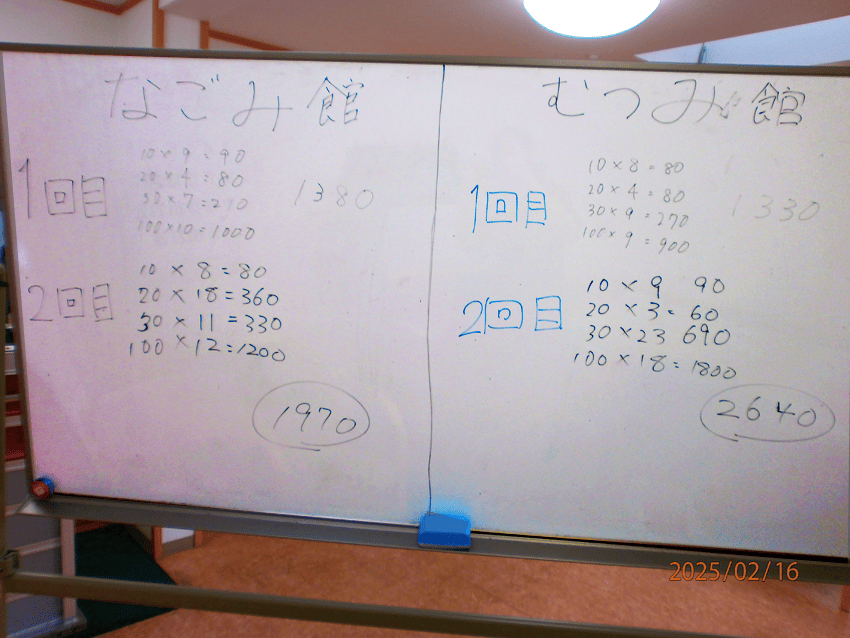 なごみ館
1回目
10 × 9 = 90
20 × 4 = 80
30 × 7 = 210
100 × 10 = 1000
1380
2回目
10 × 8 = 80
20 × 18 = 360
30 × 11 = 330
100 × 12 = 1200
1970
むつみ館
1回目
10 × 8 = 80
20 × 4 = 80
30 × 9 = 270
100 × 9 = 900
1330
2回目
10 × 9 90
20 × 3 = 60
30 × 23 690
100 × 18 = 1800
2640
2025/02/16